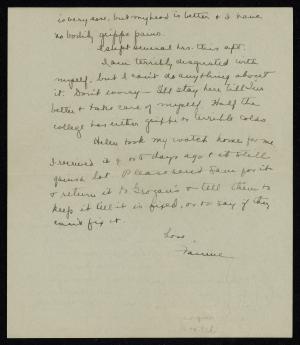 is very sore, but my head is better & I have
no bodily grippe pains.
I slept several hrs. this aft.
I am terribly disgusted with
myself, but I can't do anything about
it. Don't worry – I'll stay here till I'm
better & take care of myself. Half the
college has either grippe or terrible colds.
Helen took my watch home for me
I received it 4 or 5 days ago & it still
gains a lot. Please send Sam for it
or return it to Grogan's & tell them to
keep it till it is fixed, or to say if they
can't fix it.
Love